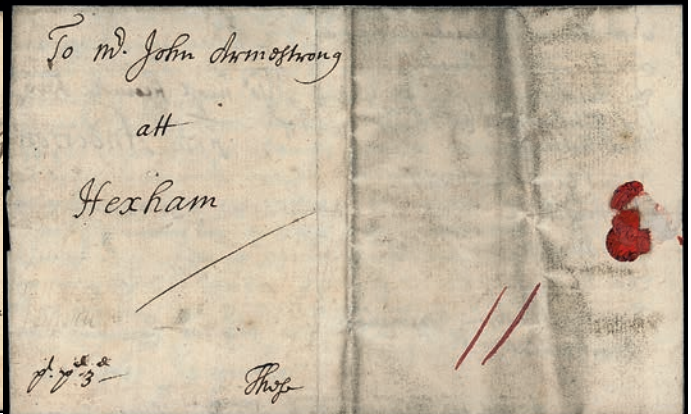 To Mr. John Armestrong
att
Hexham
pd. 3d
These